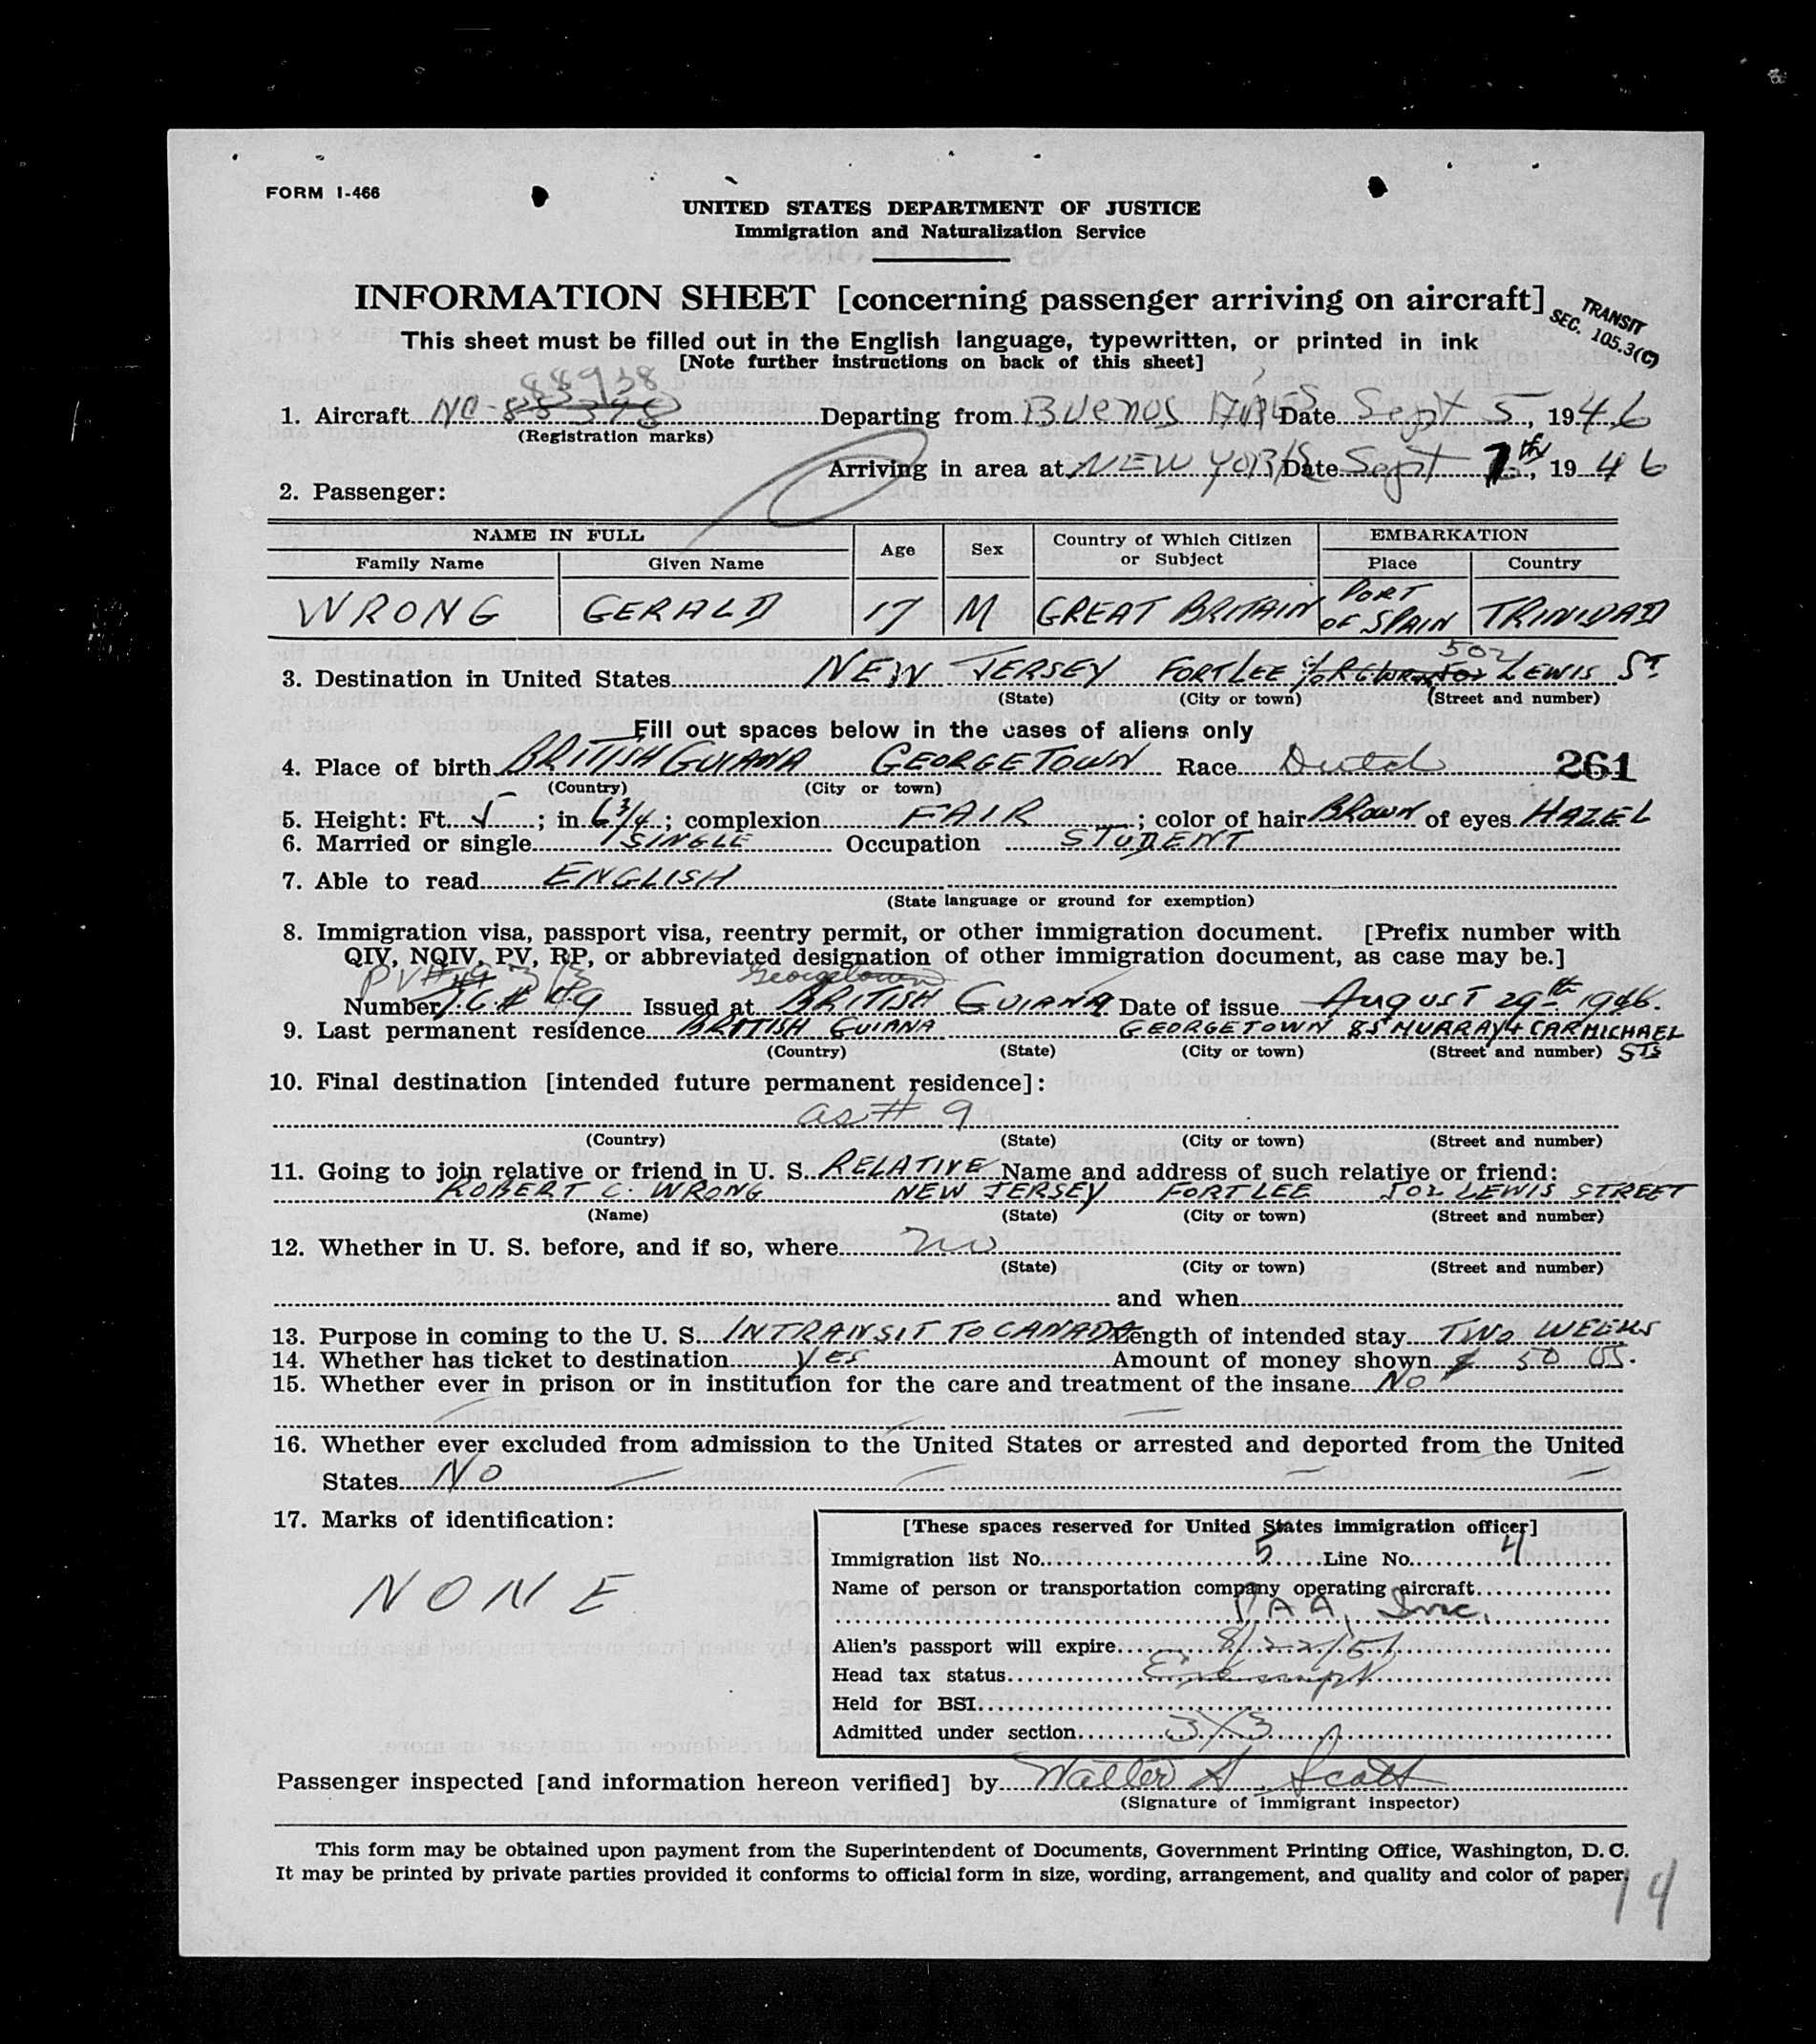 FORM I-466
UNITED STATES DEPARTMENT OF JUSTICE
Immigration and Naturalization Service
INFORMATION SHEET [concerning passenger arriving on aircraft]
TRANSIT
SEC. 105.3(C)
This sheet must be filled out in the English language, typewritten, or printed in ink
[Note further instructions on back of this sheet]
88938
1. Aircraft NC-88398 Departing from Buenos Aires Date Sept 5, 1946
(Registration marks)
Arriving in area at NEW YORK Date Sept 7th, 1946
2. Passenger:
NAME IN FULL Age Sex Country of Which Citizen or Subject EMBARKATION
Family Name Given Name Place Country
WRONG GERALD 17 M GREAT BRITAIN PORT OF SPAIN TRINIDAD
502
3. Destination in United States NEW JERSEY FORT LEE LEWIS ST
(State) (City or town) (Street and number)
Fill out spaces below in the cases of aliens only
4. Place of birth BRITISH GUIANA GEORGETOWN Race Dutch 261
(Country) (City or town)
5. Height: Ft. 5; in. 6 3/4; complexion FAIR; color of hair BROWN of eyes HAZEL
6. Married or single SINGLE Occupation STUDENT
7. Able to read ENGLISH
(State language or ground for exemption)
8. Immigration visa, passport visa, reentry permit, or other immigration document. [Prefix number with
QIV, NQIV, PV, RP, or abbreviated designation of other immigration document, as case may be.]
PV Georgetown
Number Issued at BRITISH GUIANA Date of issue AUGUST 29th 1946.
9. Last permanent residence BRITISH GUIANA GEORGETOWN 85 MURRAY & CARMICHAEL STS
(Country) (State) (City or town) (Street and number)
10. Final destination [intended future permanent residence]:
as # 9
(Country) (State) (City or town) (Street and number)
11. Going to join relative or friend in U. S. RELATIVE Name and address of such relative or friend:
ROBERT C. WRONG NEW JERSEY FORT LEE 502 LEWIS STREET
(Name) (State) (City or town) (Street and number)
12. Whether in U. S. before, and if so, where no
(State) (City or town) (Street and number)
and when
13. Purpose in coming to the U. S. INTRANSIT TO CANADA Length of intended stay TWO WEEKS
14. Whether has ticket to destination YES Amount of money shown $ 50 US.
15. Whether ever in prison or in institution for the care and treatment of the insane NO
16. Whether ever excluded from admission to the United States or arrested and deported from the United
States NO
17. Marks of identification:
NONE
[These spaces reserved for United States immigration officer]
Immigration list No. 5 Line No. 4
Name of person or transportation company operating aircraft
PAA, Inc.
Alien's passport will expire 8/22/51
Head tax status Exempt
Held for BSI
Admitted under section 3/3
Passenger inspected [and information hereon verified] by Walter S. Scott
(Signature of immigrant inspector)
This form may be obtained upon payment from the Superintendent of Documents, Government Printing Office, Washington, D. C.
It may be printed by private parties provided it conforms to official form in size, wording, arrangement, and quality and color of paper.
14